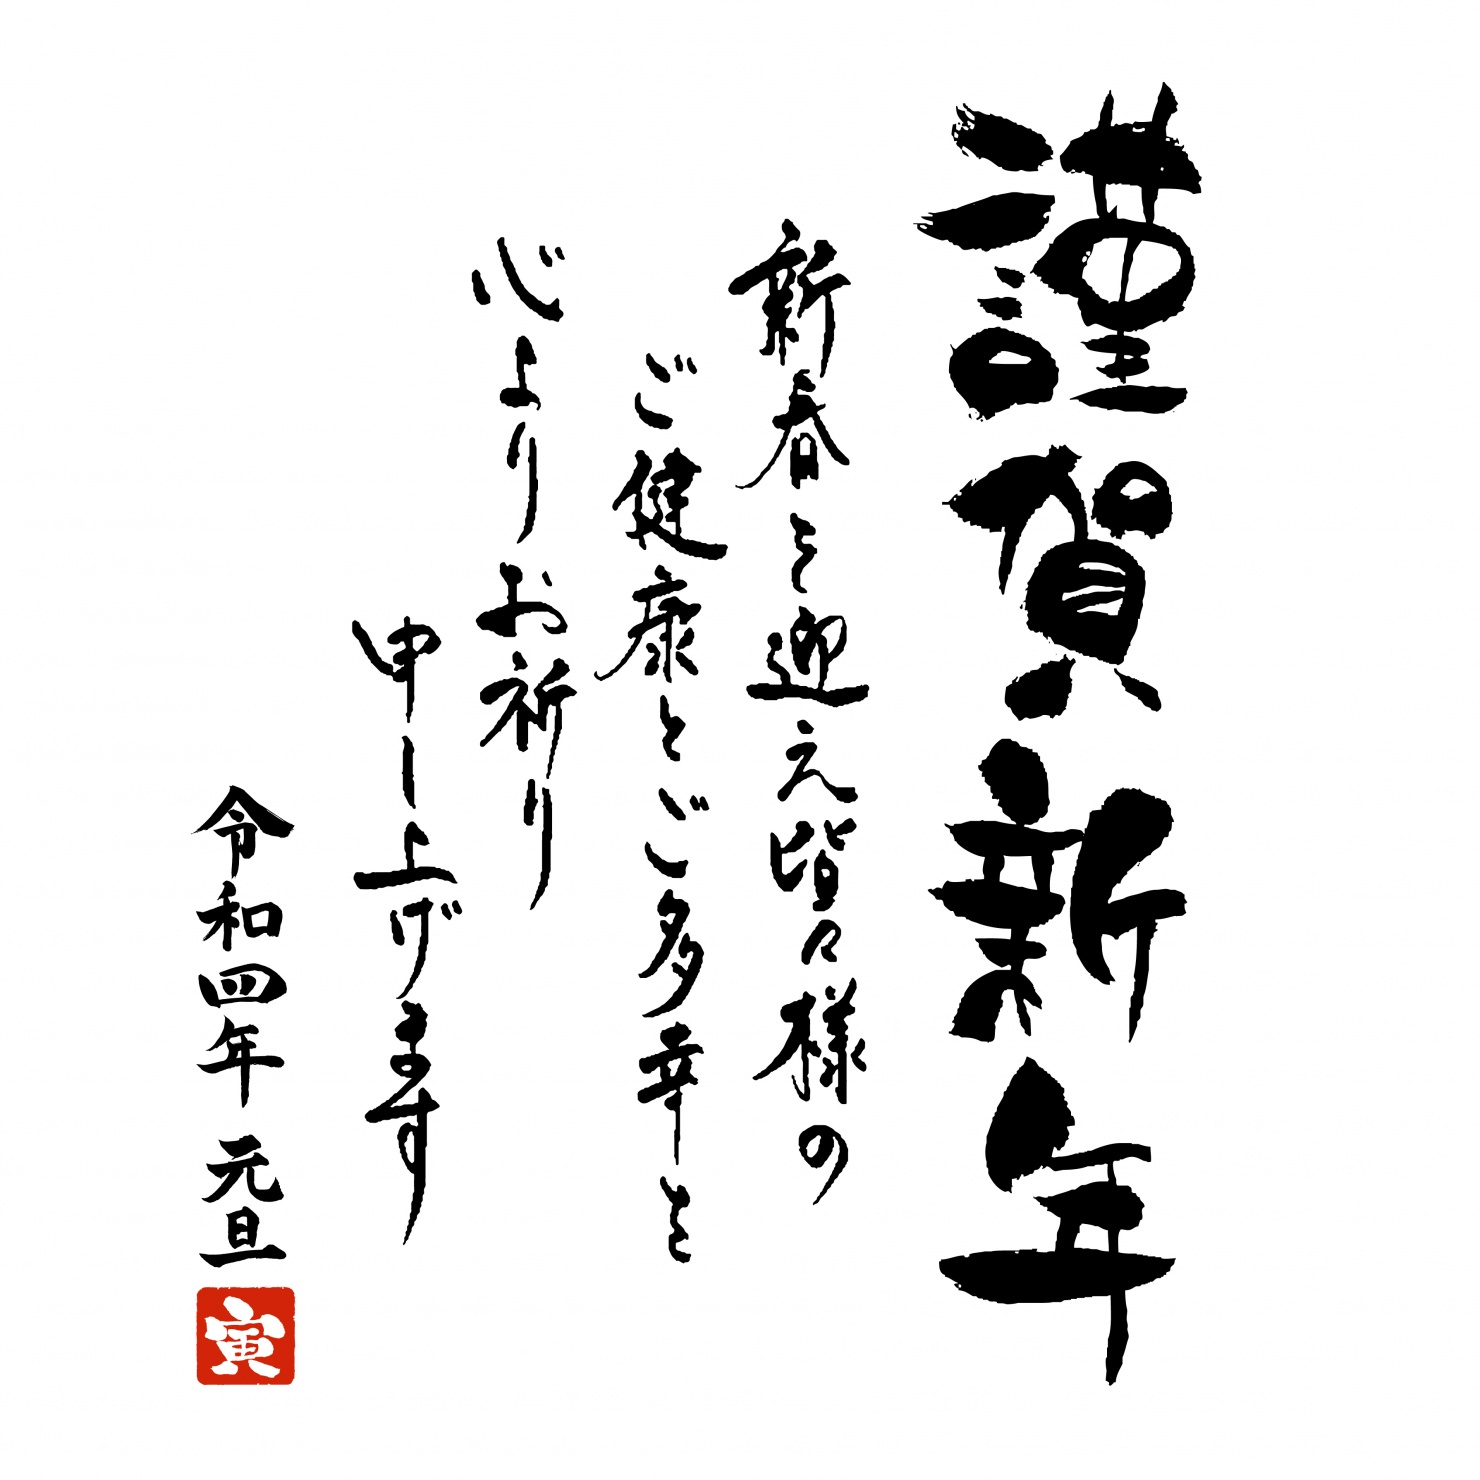 謹賀新年
新春を迎え皆々様の
ご健康とご多幸を
心よりお祈り
申し上げます
令和四年 元旦
寅